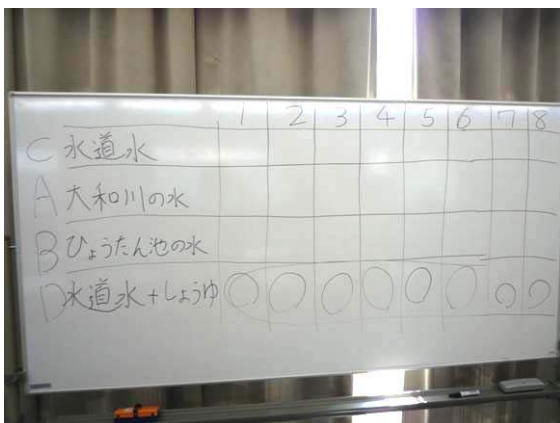 1 2 3 4 5 6 7 8
C 水道水
A 大和川の水
B ひょうたん池の水
D 水道水+しょうゆ ○ ○ ○ ○ ○ ○ ○ ○